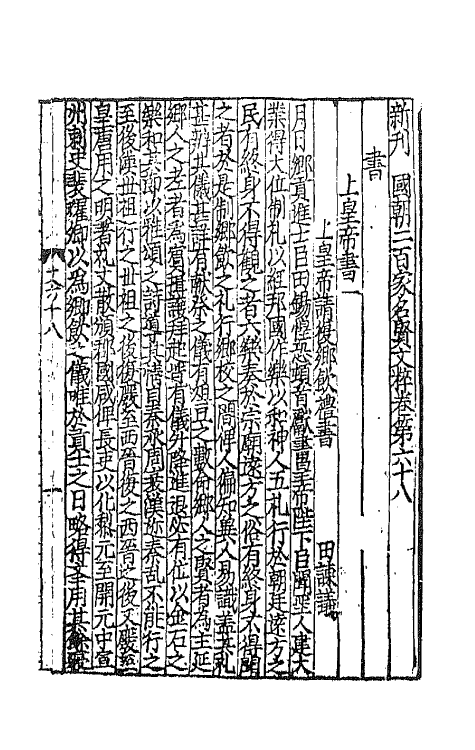 新刊 國朝二百家名賢文粹卷第六十八
書
上皇帝書一
上皇帝請復鄉飲禮書 田諫議
月日鄉貢進士臣田錫惶恐頓首獻書皇帝陛下臣聞聖人建大
業得大位制礼以經邦國作樂以和神人五礼行於朝廷遠方之
民有終身不得覩之者六樂奏於宗廟遠方之俗有終身不得聞
之者於是制鄉飲之礼行鄉校之間俾人徧知異人易識蓋其礼
甚辨其儀甚詳有獻祭之儀有俎豆之數命鄉人之賢者為主延
鄉人之老者為賓揖讓拜起皆有儀升降進退必有位以金石之
樂和其節以雅頌之詩導其情自秦承周衰漢弥秦乱不能行之
至後漢世祖行之世祖之後復廢至西晉復之西晉之後又廢
皇唐用之明著礼文散頒郡國咸俾長吏以化黎元至開元中宣
州刺史裴耀卿以為鄉飲之儀唯於貢士之日略得其用其餘
十六六十八